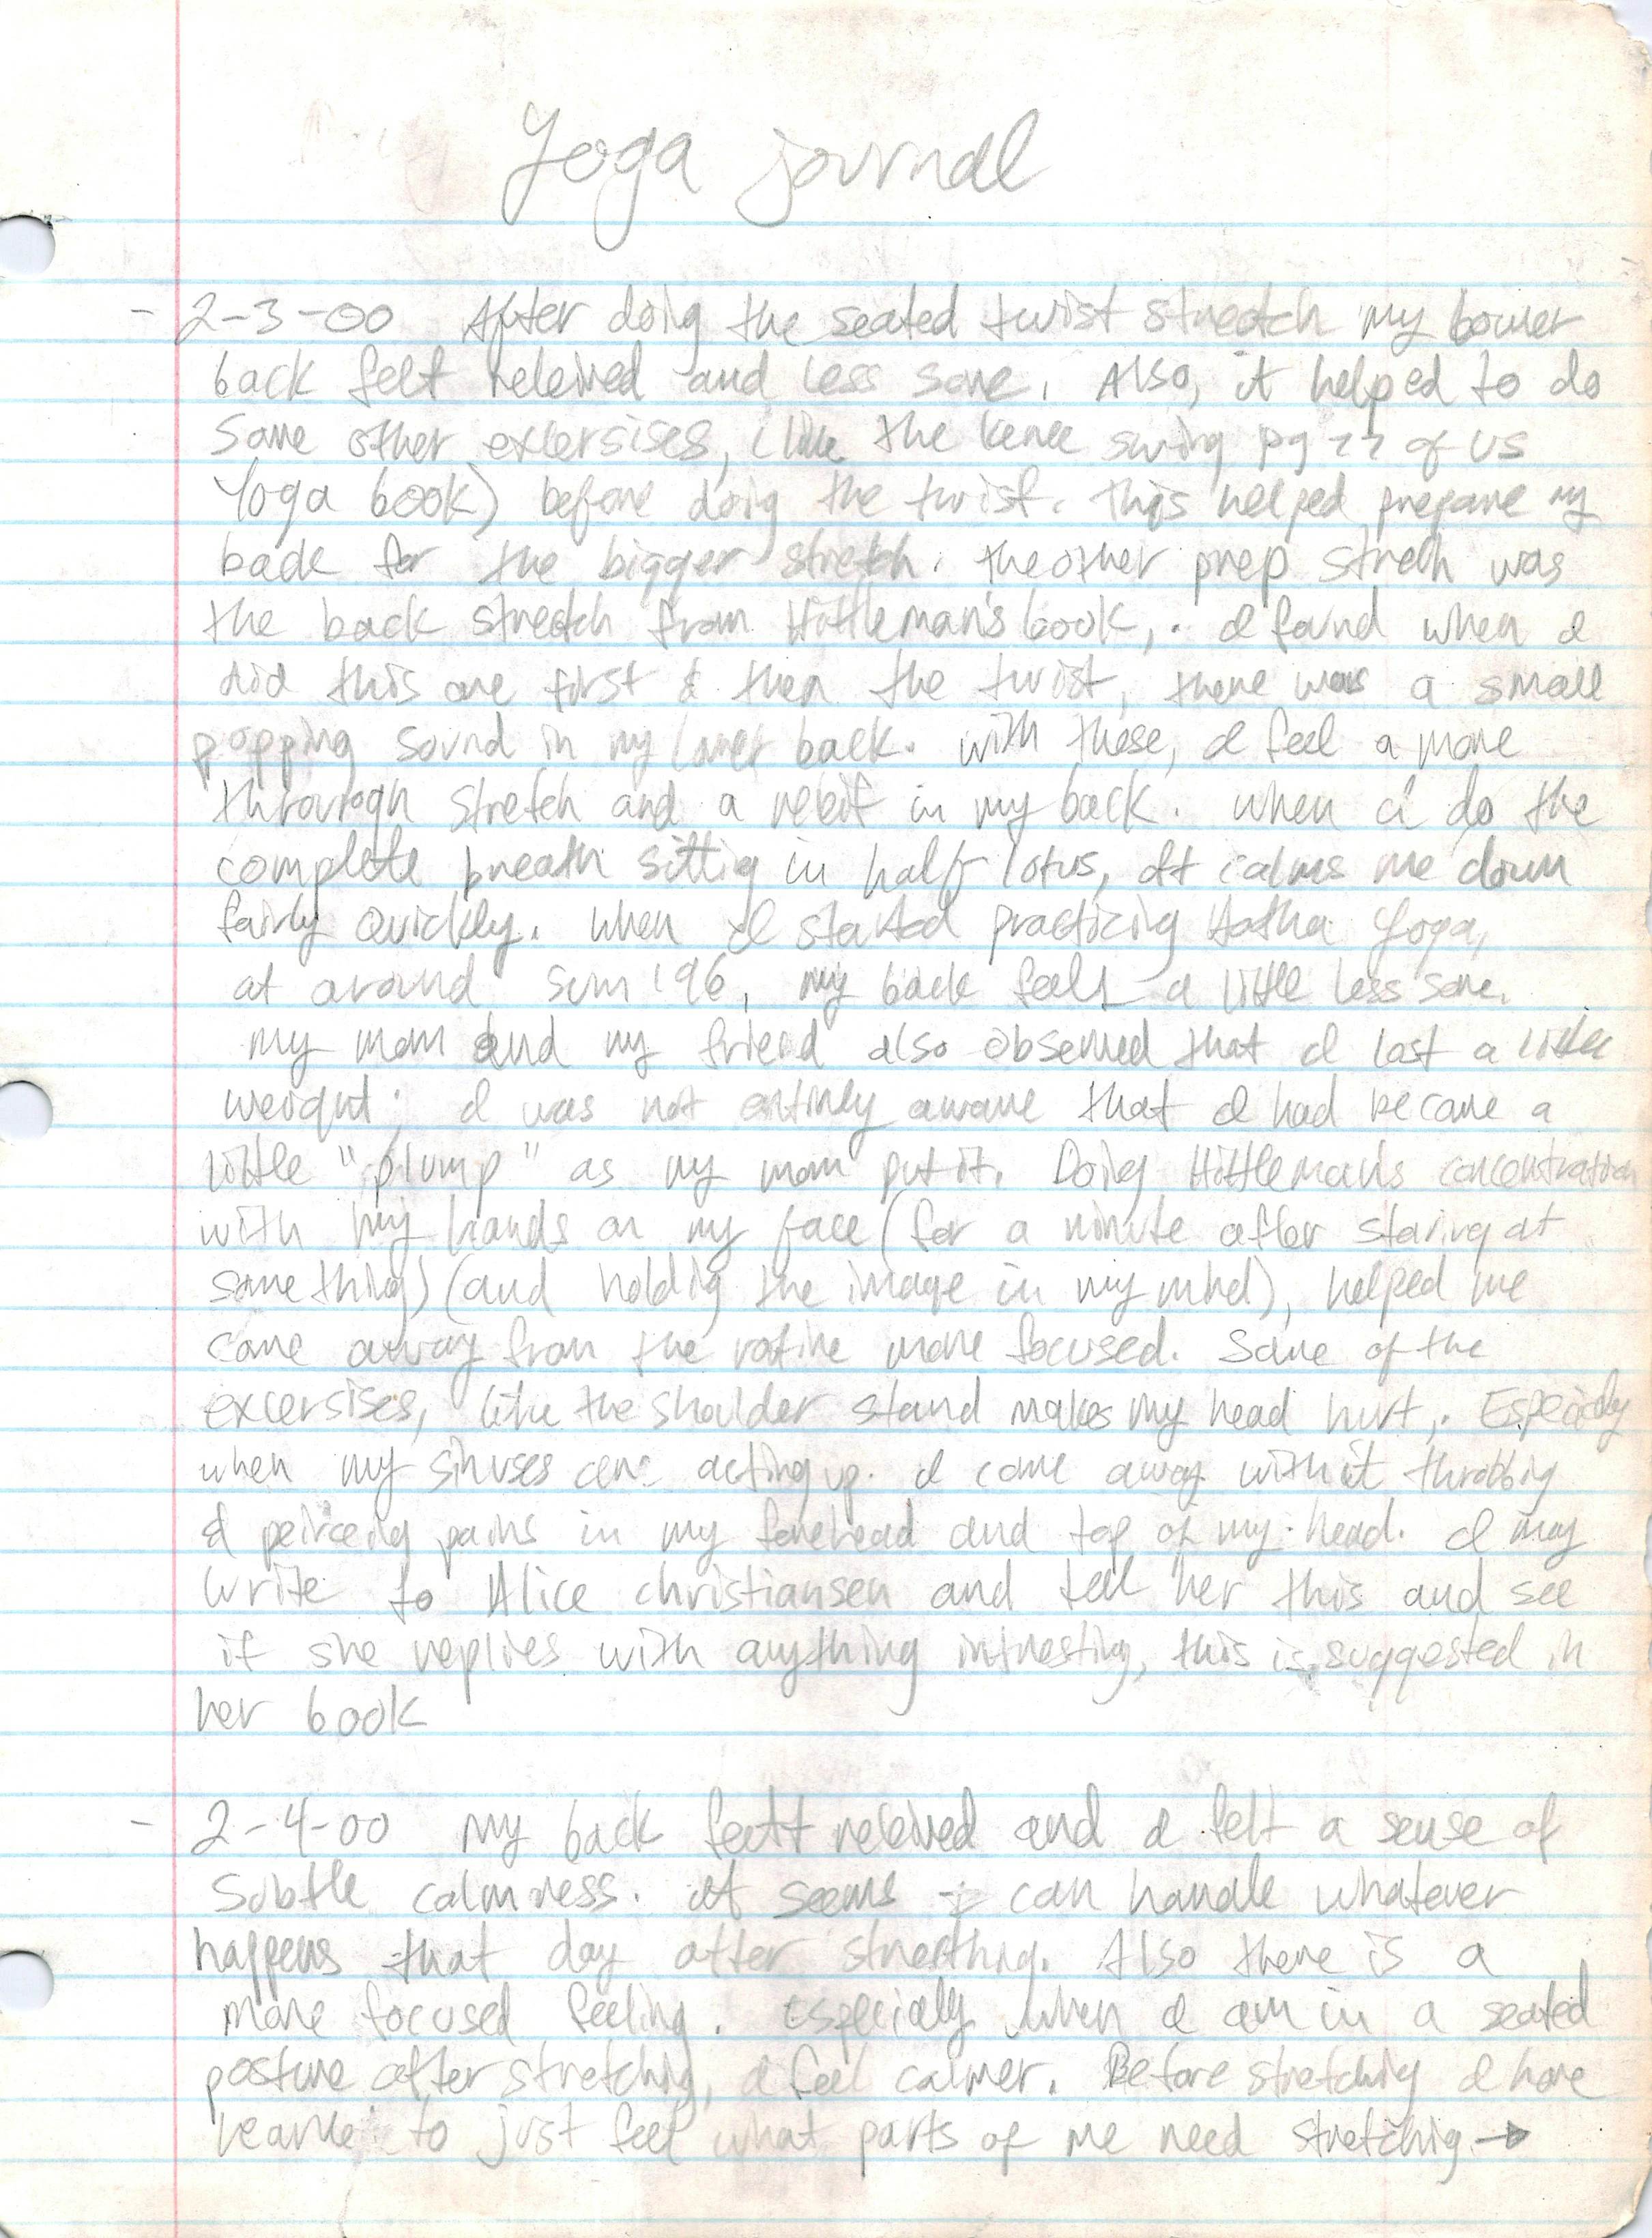 Yoga journal
- 2-3-00 After doing the seated twist stretch my lower
back felt releived and less sore. Also, it helped to do
some other excersises, (like the kenee swing pg 22 of US
Yoga book) before doig the twist. This helped prepare my
back for the bigger stretch. the other prep streth was
the back stretch from Hittleman's book,. I found when I
did this one first & then the twist, there was a small
popping sound in my lower back. with these, I feel a more
through stretch and a releif in my back. when I do the
complete breath sittig in half lotus, It calms me down
fairly quickly. when I started practicing Hatha Yoga,
at around sum '96, my back feels a little less sore.
my mom and my friend also observed that I lost a little
weight; I was not entirely aware that I had become a
little "plump" as my mom put it. Doing Hittleman's concentration
with my hands on my face (for a minute after staring at
something) (and holdig the image in my mind), helped me
come away from the rotine more focused. Some of the
excersises, like the shoulder stand makes my head hurt,. Especialy
when my sinuses are acting up. I come away with it throbbig
& peirceing pains in my forehead and top of my head. I may
write to Alice christiansen and tell her this and see
if she replies with anything intresting, this is suggested in
her book
- 2-4-00 my back feltt releived and I felt a sense of
subtle calmness. It seems I can handle whatever
happens that day after strecthing. Also there is a
more focused feeling. Especially when I am in a seated
posture after stretching, I feel calmer. Before stretching I have
learne to just feel what parts of me need stretchig →